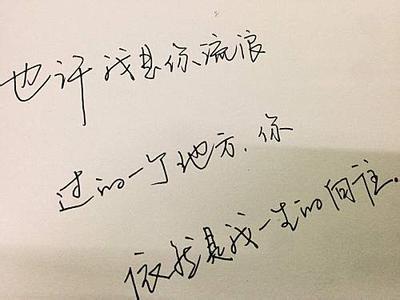 也许我是你流浪
过的一个地方，你
依然是我一生的向往。